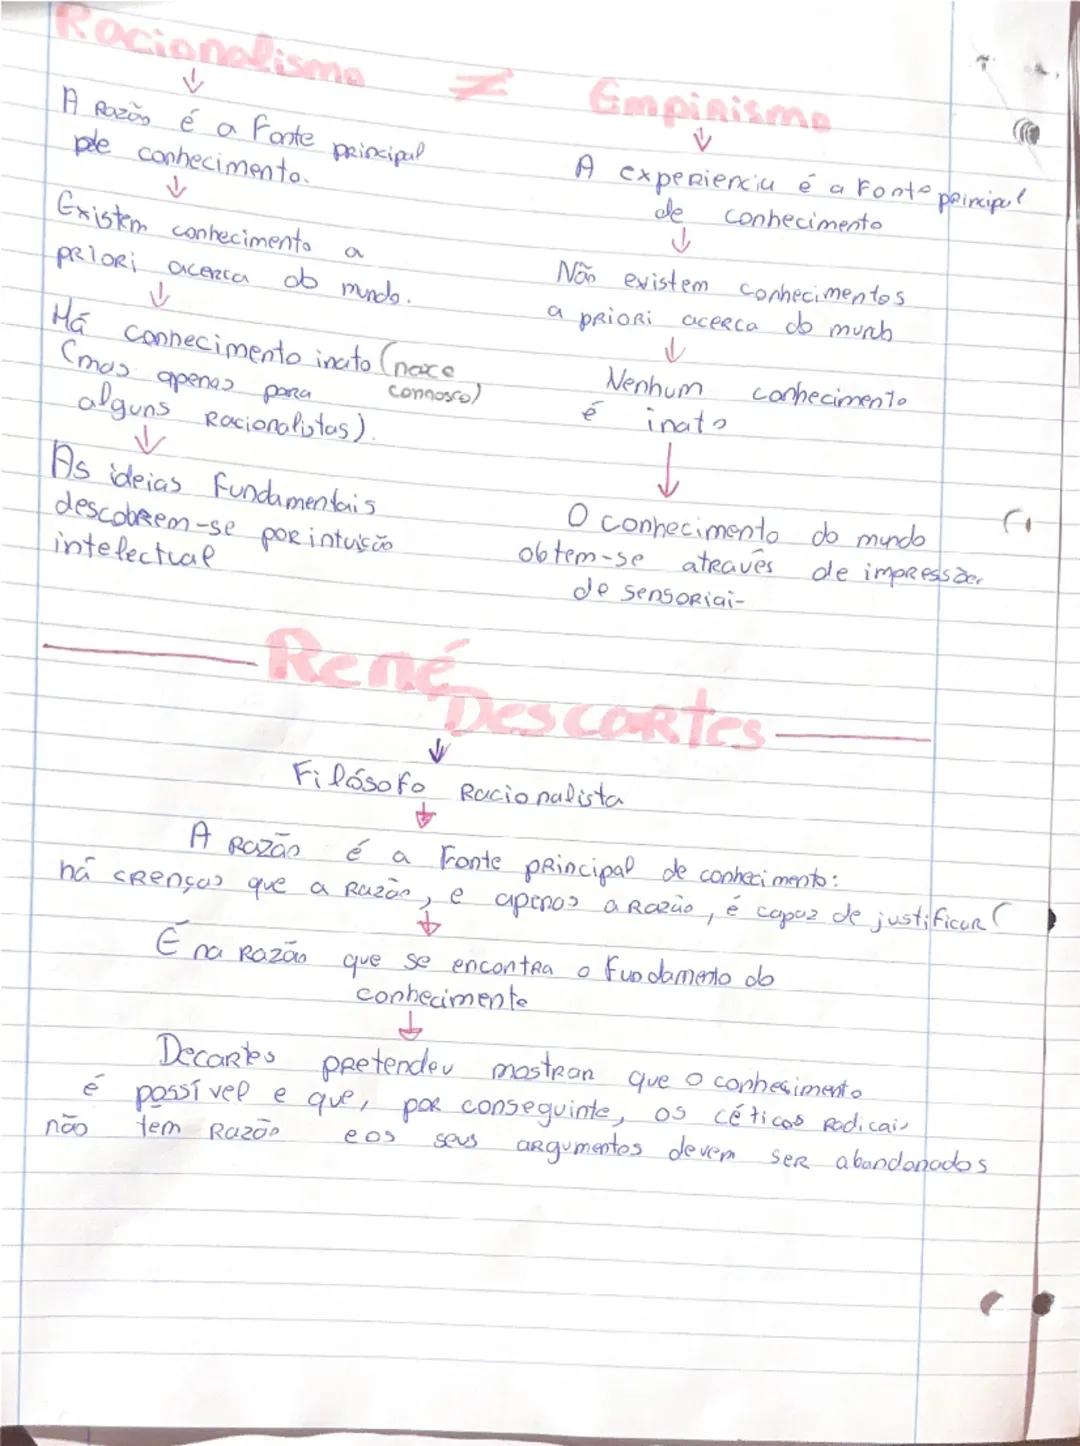 Racionalismo ≠ Empirismo
↓
A Razão é a Fonte principal
de conhecimento.
↓
Existem conhecimento a
priori acerca do mundo.
↓
Há conhecimento inato (nace
connosco)
(mas apenas para
alguns Racionalistas).
↓
As ideias fundamentais
descobrem-se por intuição
intelectual
↓
A experiencia é a Fonte principal
de conhecimento
↓
Não existem conhecimentos
a priori acerca do mundo
↓
Nenhum conhecimento
é inato
↓
O conhecimento do mundo
obtem-se através de impressões
de sensoriai-
René
Descartes
↓
Filósofo Racionalista
↓
A Razão é a Fonte principal de conhecimento:
há crenças que a Razão, e apenas a Razão, é capaz de justificar
↓
É na Razão que se encontra o fundamento do
conhecimento
↓
Decartes pretendeu mostrar que o conhecimento
é possível e que, por conseguinte, os céticos Radicais
não tem Razão e os seus argumentos devem ser abandonados